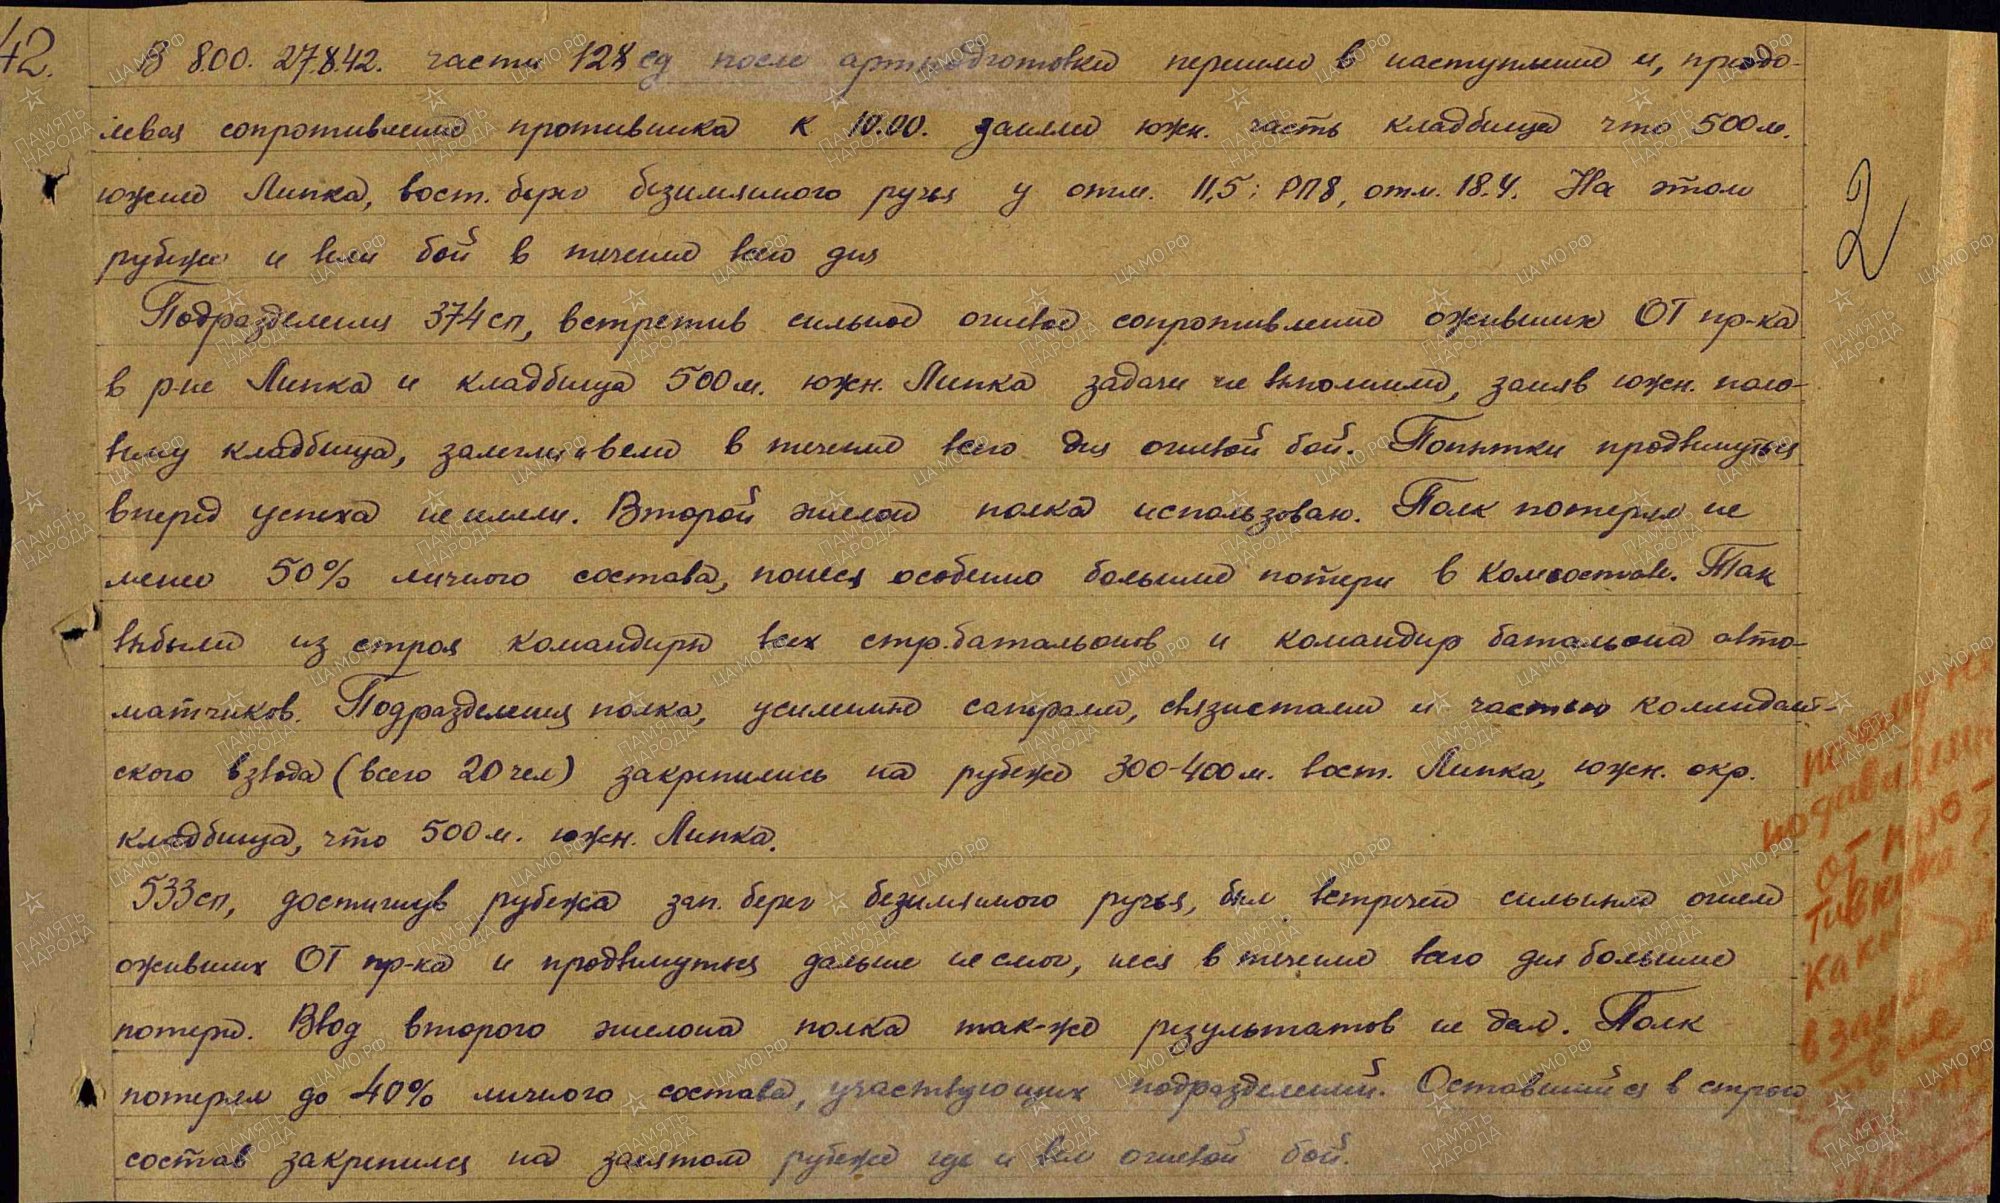 42.
В 8.00. 27.8.42. части 128 сд после артподготовки перешли в наступление и, преодо-
левая сопротивление противника к 10.00. заняли южн. часть кладбища что 500 м.
южнее Липка, вост. берег безимянного ручья у отм. 11,5; РП8, отм. 18.4. На этом
рубеже и вели бой в течение всего дня
Подразделения 374 сп, встретив сильное огневое сопротивление оживших ОТ пр-ка
в р-не Липка и кладбища 500 м. южн. Липка задачи не выполнили, заняв южн. поло-
вину кладбища, залегли и вели в течение всего дня огневой бой. Попытки продвинуться
вперед успеха не имели. Второй эшелон полка использован. Полк потерял не
менее 50% личного состава, понеся особенно большие потери в комсоставе. Так
выбыли из строя командиры всех стр. батальонов и командир батальона авто-
матчиков. Подразделения полка, усиленные саперами, связистами и частью комендант-
ского взвода (всего 20 чел) закрепились на рубеже 300-400 м. вост. Липка, южн. окр.
кладбища, что 500 м. южн. Липка.
533 сп, достигнув рубежа зап. берег безимянного ручья, был встречен сильным огнем
оживших ОТ пр-ка и продвинуться дальше не смог, неся в течение всего дня большие
потери. Ввод второго эшелона полка так-же результатов не дал. Полк
потерял до 40% личного состава, участвующих подразделений. Оставшийся в строю
состав закрепился на занятом рубеже где и вел огневой бой.
2
почему не
подавили
ОТ про-
тивника?
ПАМЯТЬ НАРОДА
ЦАМО.РФ